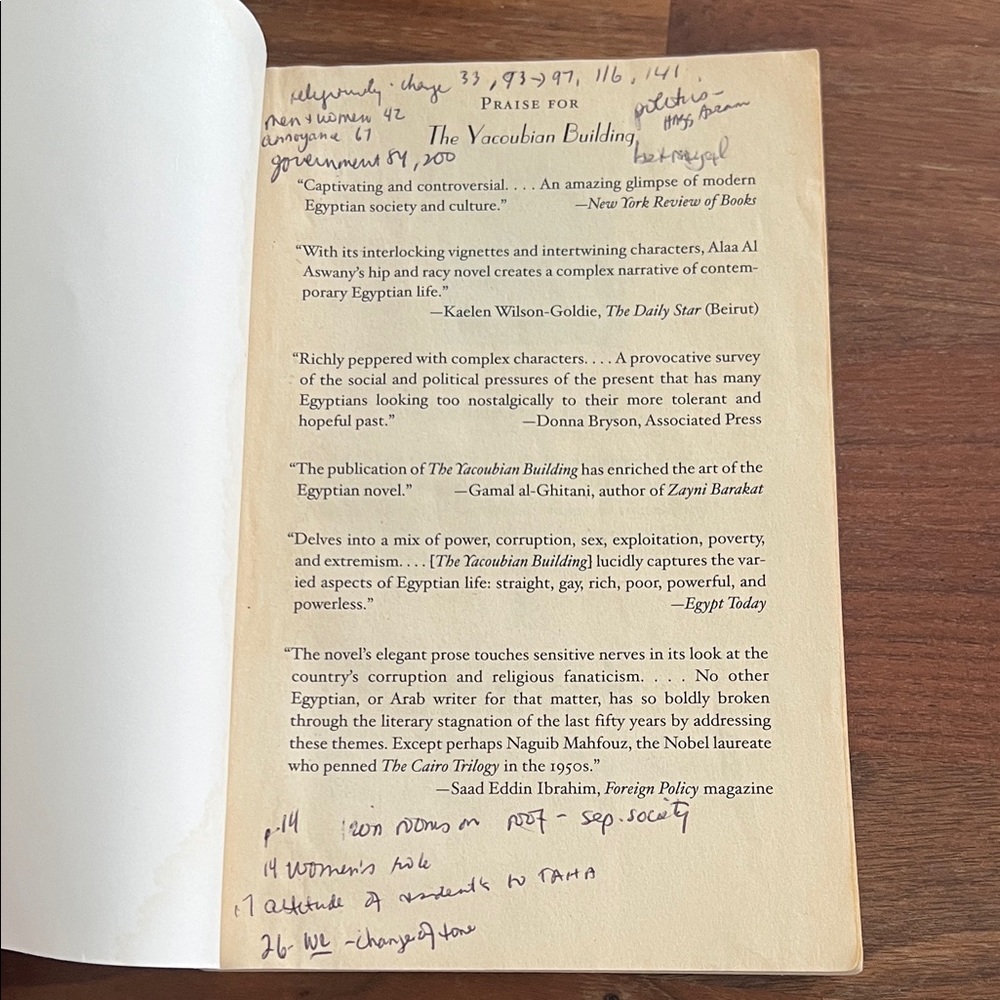 religiously · change 33, 93→97, 116, 141.
men + women 42
annoyance 67
government 84, 200
politics –
betrayal
PRAISE FOR
The Yacoubian Building
“Captivating and controversial. . . . An amazing glimpse of modern
Egyptian society and culture.” —New York Review of Books
“With its interlocking vignettes and intertwining characters, Alaa Al
Aswany’s hip and racy novel creates a complex narrative of contem-
porary Egyptian life.”
—Kaelen Wilson-Goldie, The Daily Star (Beirut)
“Richly peppered with complex characters. . . . A provocative survey
of the social and political pressures of the present that has many
Egyptians looking too nostalgically to their more tolerant and
hopeful past.” —Donna Bryson, Associated Press
“The publication of The Yacoubian Building has enriched the art of the
Egyptian novel.” —Gamal al-Ghitani, author of Zayni Barakat
“Delves into a mix of power, corruption, sex, exploitation, poverty,
and extremism. . . . [The Yacoubian Building] lucidly captures the var-
ied aspects of Egyptian life: straight, gay, rich, poor, powerful, and
powerless.” —Egypt Today
“The novel’s elegant prose touches sensitive nerves in its look at the
country’s corruption and religious fanaticism. . . . No other
Egyptian, or Arab writer for that matter, has so boldly broken
through the literary stagnation of the last fifty years by addressing
these themes. Except perhaps Naguib Mahfouz, the Nobel laureate
who penned The Cairo Trilogy in the 1950s.”
—Saad Eddin Ibrahim, Foreign Policy magazine
p.14 iron rooms on roof – sep. society
14 women's role
17 attitude of residents to TAHA
26 - we - change of tone